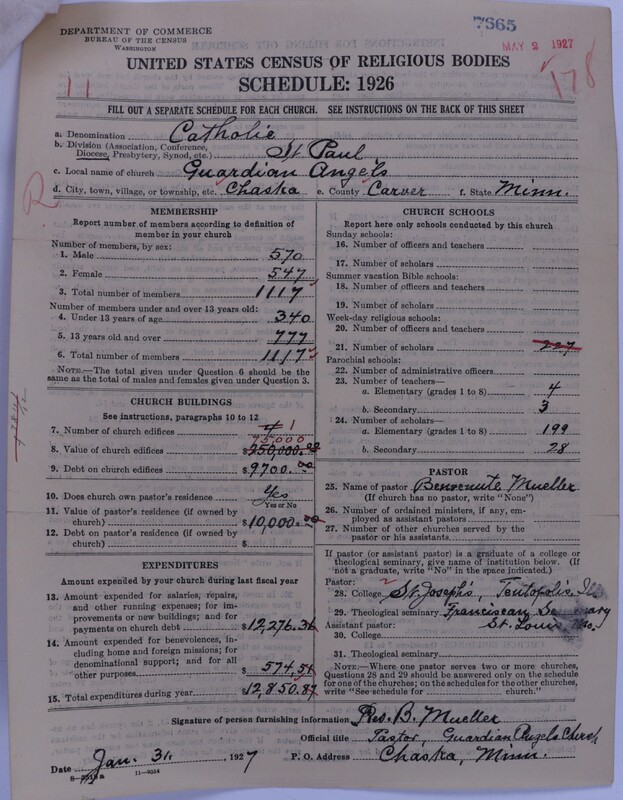 7665
MAY 2 1927
DEPARTMENT OF COMMERCE
BUREAU OF THE CENSUS
WASHINGTON
178
UNITED STATES CENSUS OF RELIGIOUS BODIES
SCHEDULE: 1926
11
FILL OUT A SEPARATE SCHEDULE FOR EACH CHURCH. SEE INSTRUCTIONS ON THE BACK OF THIS SHEET
a. Denomination Catholic
b. Division (Association, Conference,
Diocese, Presbytery, Synod, etc.) St Paul
c. Local name of church Guardian Angels
d. City, town, village, or township, etc. Chaska e. County Carver f. State Minn.
MEMBERSHIP
Report number of members according to definition of
member in your church
Number of members, by sex:
1. Male 570
2. Female 547
3. Total number of members 1117
Number of members under and over 13 years old:
4. Under 13 years of age 340
5. 13 years old and over 777
6. Total number of members 1117
NOTE.—The total given under Question 6 should be
the same as the total of males and females given under Question 3.
CHURCH BUILDINGS
See instructions, paragraphs 10 to 12
7. Number of church edifices 4 1
75,000
8. Value of church edifices $250,000.00
9. Debt on church edifices $9700.00
10. Does church own pastor's residence Yes
Yes or No
11. Value of pastor's residence (if owned by
church) $10,000.00
12. Debt on pastor's residence (if owned by
church) $
EXPENDITURES
Amount expended by your church during last fiscal year
13. Amount expended for salaries, repairs,
and other running expenses; for im-
provements or new buildings; and for
payments on church debt $12,276.36
14. Amount expended for benevolences, in-
cluding home and foreign missions; for
denominational support; and for all
other purposes $574.51
15. Total expenditures during year $12,850.87
CHURCH SCHOOLS
Report here only schools conducted by this church
Sunday schools:
16. Number of officers and teachers
17. Number of scholars
Summer vacation Bible schools:
18. Number of officers and teachers
19. Number of scholars
Week-day religious schools:
20. Number of officers and teachers
21. Number of scholars 227
Parochial schools:
22. Number of administrative officers
23. Number of teachers—
a. Elementary (grades 1 to 8) 4
b. Secondary 3
24. Number of scholars—
a. Elementary (grades 1 to 8) 199
b. Secondary 28
PASTOR
25. Name of pastor Benvenute Mueller
(If church has no pastor, write "None")
26. Number of ordained ministers, if any, em-
ployed as assistant pastors
27. Number of other churches served by the
pastor or his assistants
If pastor (or assistant pastor) is a graduate of a college or
theological seminary, give name of institution below. (If
not a graduate, write "No" in the space indicated.)
Pastor:
28. College St. Joseph's, Teutopolis, Ill
29. Theological seminary Franciscan Seminary
Assistant pastor: St. Louis, Mo.
30. College
31. Theological seminary
NOTE.—Where one pastor serves two or more churches,
Questions 28 and 29 should be answered only on the schedule
for one of the churches; on the schedules for the other churches,
write "See schedule for church."
Signature of person furnishing information Rev. B. Mueller
Official title Pastor, Guardian Angels Church
Date Jan. 31, 1927 P. O. Address Chaska, Minn.
11—9514